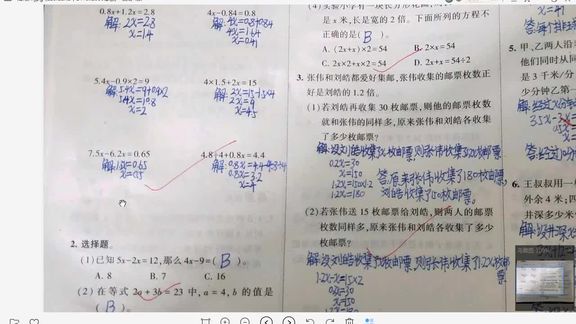 0.8x+1.2x=2.8
解:2x=2.8
x=1.4
4x-0.84=0.8
解:4x=0.8+0.84
4x=1.64
x=0.41
5.4x-0.9×2=9
解:5.4x=9+0.9×2
5.4x=10.8
x=2
4×1.5+2x=15
解:2x=15-1.5×4
2x=9
x=4.5
7.5x-6.2x=0.65
解:1.3x=0.65
x=0.5
4.8+4+0.8x=4.4
0.8x=3.2
x=4
2. 选择题。
(1)已知5x-2x=12,那么4x-9=( B )。
A. 8 B. 7 C. 16
(2)在等式2a+3b=23中,a=4,b的值是
( B )。
是x米,长是宽的2倍。下面所列的方程不
正确的是( B )。
A. (2x+x)×2=54 B. 2×x=54
C. 2x×2+x×2=54 D. 2x+x=54÷2
3. 张伟和刘皓都爱好集邮,张伟收集的邮票枚数正
好是刘皓的1.2倍。
(1)若刘皓再收集30枚邮票,则他的邮票枚数
就和张伟的同样多,原来张伟和刘皓各收集
了多少枚邮票?
解:设刘皓收集了x枚邮票,则张伟收集了1.2x枚邮票
0.2x=30
x=150
1.2x=150×1.2
1.2x=180
答:原来张伟收集了180枚邮票,
刘皓收集了150枚邮票。
(2)若张伟送15枚邮票给刘皓,则两人的邮票
枚数同样多,原来张伟和刘皓各收集了多少
枚邮票?
解:设刘皓收集了x枚邮票,则张伟收集了1.2x枚邮票
1.2x-x=15×2
0.2x=30
x=150
1.2x=180
x=41
5. 甲、乙两人沿
他们同时从同
是3千米/分
少分钟乙第一
6. 王叔叔用一根
外余4米;四
井深多少米